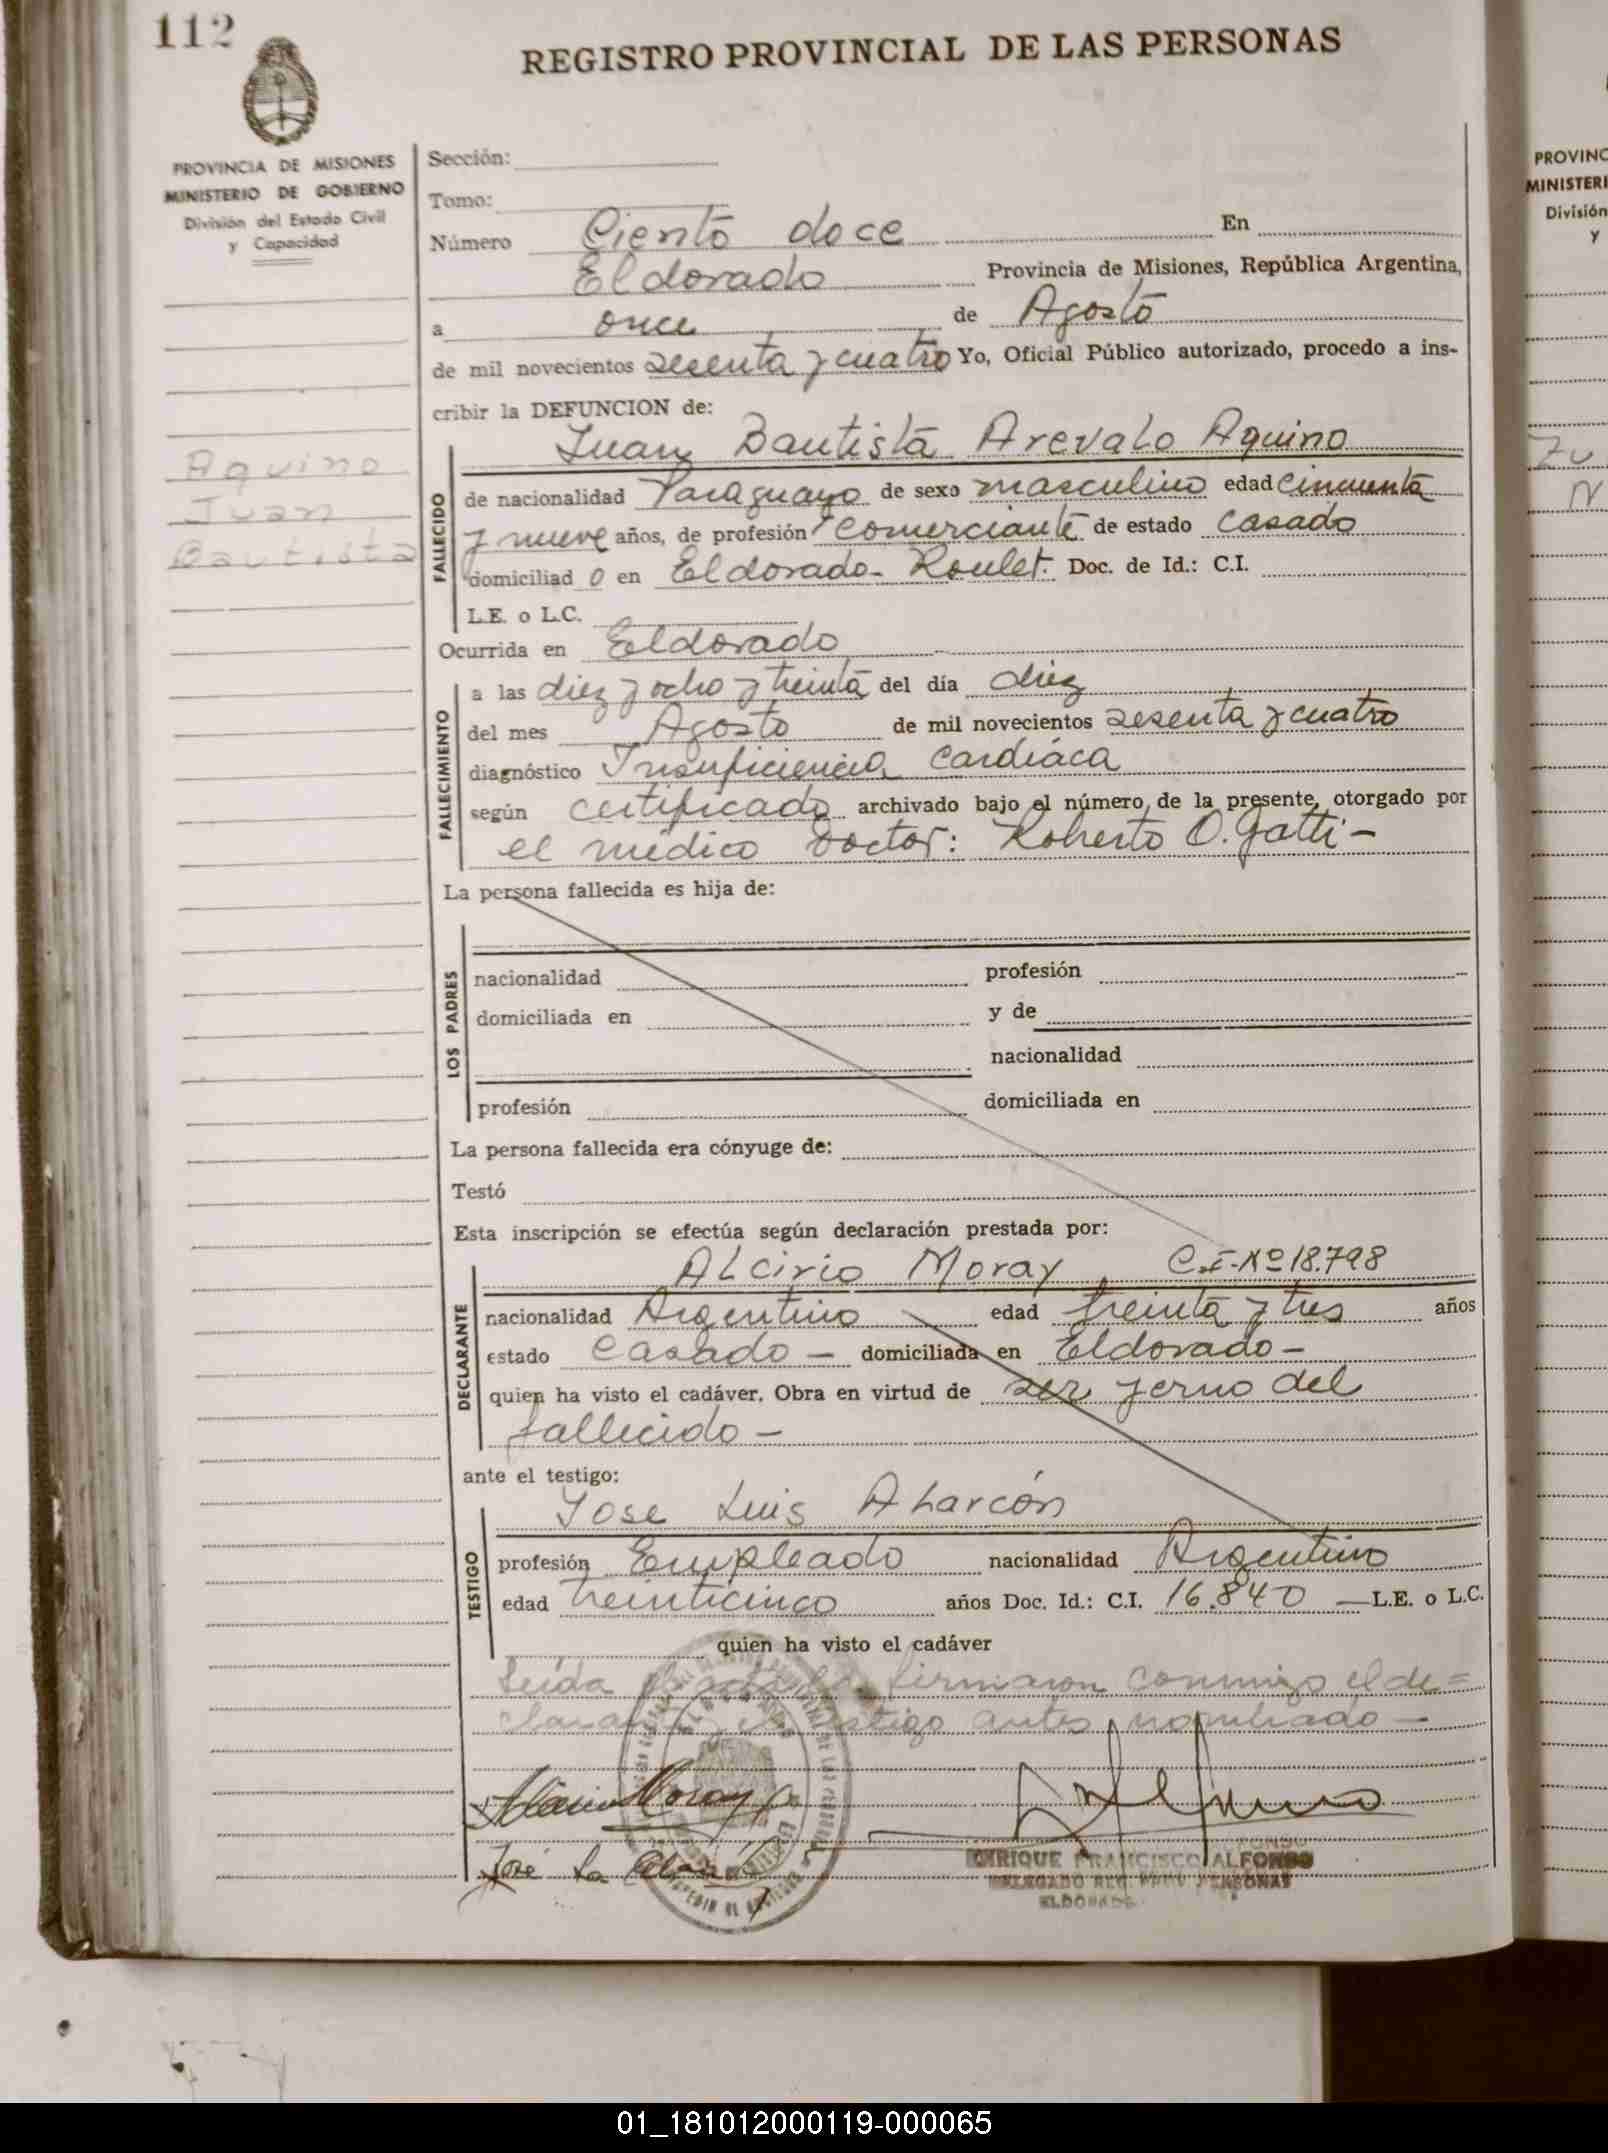 112
REGISTRO PROVINCIAL DE LAS PERSONAS
PROVINCIA DE MISIONES
MINISTERIO DE GOBIERNO
División del Estado Civil
y Capacidad
Aquino
Juan
Bautista
Sección:
Tomo:
Número Ciento doce En
Eldorado Provincia de Misiones, República Argentina,
a once de Agosto
de mil novecientos sesenta y cuatro Yo, Oficial Público autorizado, procedo a ins-
cribir la DEFUNCION de:
FALLECIDO
Juan Bautista Arevalo Aquino
de nacionalidad Paraguayo de sexo masculino edad cincuenta
y nueve años, de profesión comerciante de estado casado
domiciliad o en Eldorado - Roulet. Doc. de Id.: C.I.
L.E. o L.C.
Ocurrida en Eldorado
FALLECIMIENTO
a las diez y ocho y treinta del día diez
del mes Agosto de mil novecientos sesenta y cuatro
diagnóstico Insuficiencia Cardíaca
según certificado archivado bajo el número de la presente, otorgado por
el médico Doctor: Roberto O. Gatti -
La persona fallecida es hija de:
LOS PADRES
nacionalidad profesión
domiciliada en y de
nacionalidad
profesión domiciliada en
La persona fallecida era cónyuge de:
Testó
Esta inscripción se efectúa según declaración prestada por:
DECLARANTE
Alcirio Moray C.I. Nº 18.798
nacionalidad Argentino edad treinta y tres años
estado Casado - domiciliada en Eldorado -
quien ha visto el cadáver. Obra en virtud de ser yerno del
fallecido -
ante el testigo:
TESTIGO
Jose Luis Alarcón
profesión Empleado nacionalidad Argentino
edad treinticinco años Doc. Id.: C.I. 16.840 — L.E. o L.C.
quien ha visto el cadáver
Leída el acta la firmaron conmigo el de=
clarante y el testigo antes nombrado -
ENRIQUE FRANCISCO ALFONSO
DELEGADO REG. PROV. PERSONAS
ELDORADO
PROVINC
MINISTERI
División
y
01_181012000119-000065